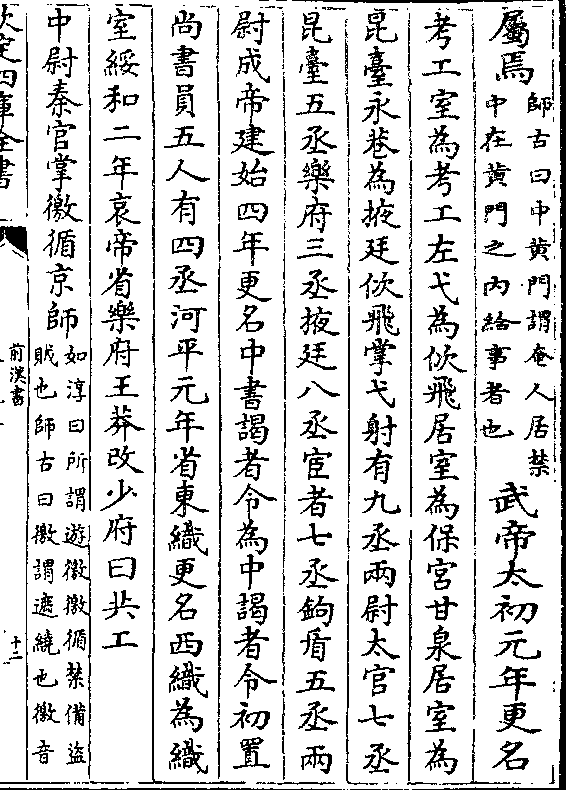 屬焉師古曰中黃門謂奄人居禁
中在黃門之內給事者也武帝太初元年更名
考工室為考工左弋為佽飛居室為保宮甘泉居室為
昆臺永巷為掖廷佽飛掌弋射有九丞兩尉太官七丞
昆臺五丞樂府三丞掖廷八丞宦者七丞鉤盾五丞兩
尉成帝建始四年更名中書謁者令為中謁者令初置
尚書員五人有四丞河平元年省東織更名西織為織
室綏和二年哀帝省樂府王莽改少府曰共工
中尉秦官掌徼循京師如淳曰所謂遊徼徼循禁備盜
賊也師古曰徼謂遮繞也徼音
欽定四庫全書
前漢書
十二